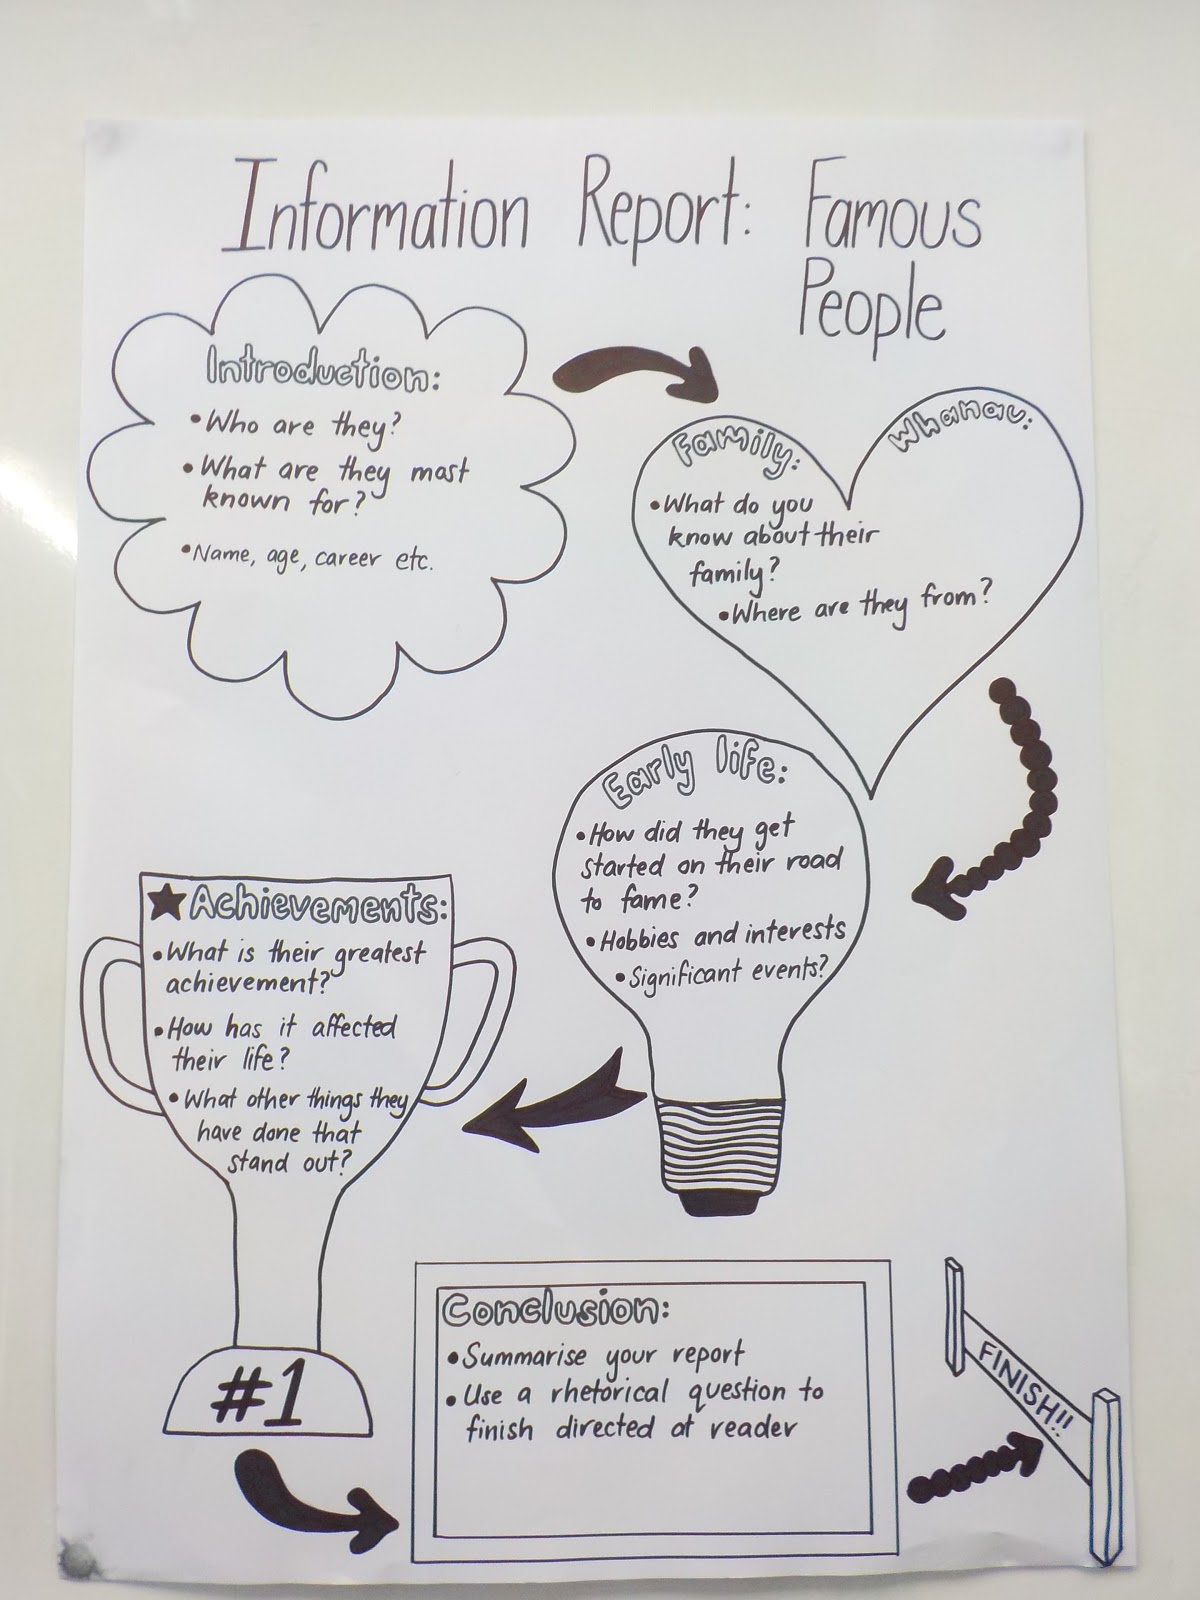 Information Report: Famous
People
Introduction:
•Who are they?
•What are they most
known for?
•Name, age, career etc.
Family:
Whanau:
•What do you
know about their
family?
•Where are they from?
Early life:
•How did they get
started on their road
to fame?
•Hobbies and interests
•Significant events?
★Achievements:
•What is their greatest
achievement?
•How has it affected
their life?
•What other things they
have done that
stand out?
#1
Conclusion:
•Summarise your report
•Use a rhetorical question to
finish directed at reader
FINISH!!